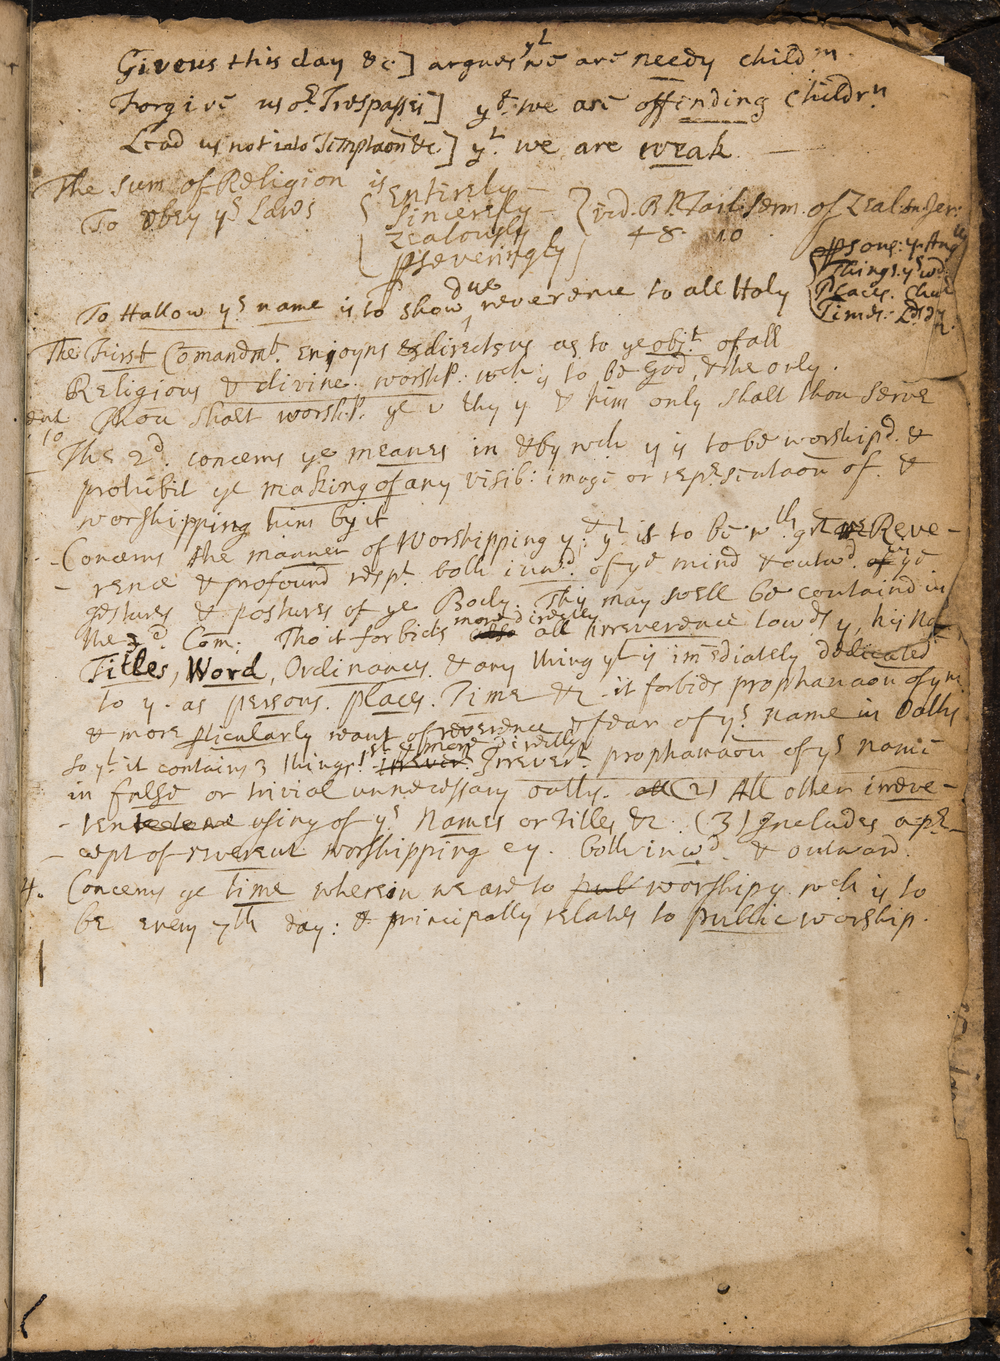 Give us this day &c] argues yt we are needy childrn
Forgive us or Trespasses] yt we are offending Childrn
Lead us not into Temptaon &c.] yt we are weak
The sum of Religion is
To obey ys Laws
Entirely
Sincerely
Zealously
pseveringly
vid. BP. Tail: serm. of Zeal
48 10
To Hallow ys name is to show due reverence to all Holy
psons: y. Ang
Things. ys wd.
Places. Chu
Times. Lds dy
The First Comandmt. enjoyns & directs us as to ye objt. of all
Religious & divine worshP. wch is to be God, & the only.
Thou shalt worshiP. ye thy y & him only shalt thou serve
The 2d. concerns ye meanes in & by wch y is to be worshipd. &
prohibit ye making of any visib: image or repesentaon of. &
worshipping him by it
Concerns the manner of Worshipping y: yt is to be wth grt Reve-
rence & profound respt. both inwd. of ye mind & outwd. of ye
gestures & postures of ye Body. Thy may well be containd in
the 3d Com: Tho it forbids more directly all Irreverence towds y, his Na
Titles, Word, Ordinances, & any thing yt is imediately dedicated
to y. as persons. places. Time &c. it forbids prophanaon of ym
& more pticularly want of reverence & fear of ys Name in Oaths
so yt it contains 3 things. 1st & more directly Irrevert. prophanaon of ys name
in false or trivial unnecessary oaths. all (2) All other irreve-
rent using of ys Names or Titles &c. (3) Includes a pe-
cept of reverent worshipping ey. both inwd. & outward.
4. Concerns ye time wherein we are to pub worship y. wch is to
be every 7th day: & principally relates to public worship.